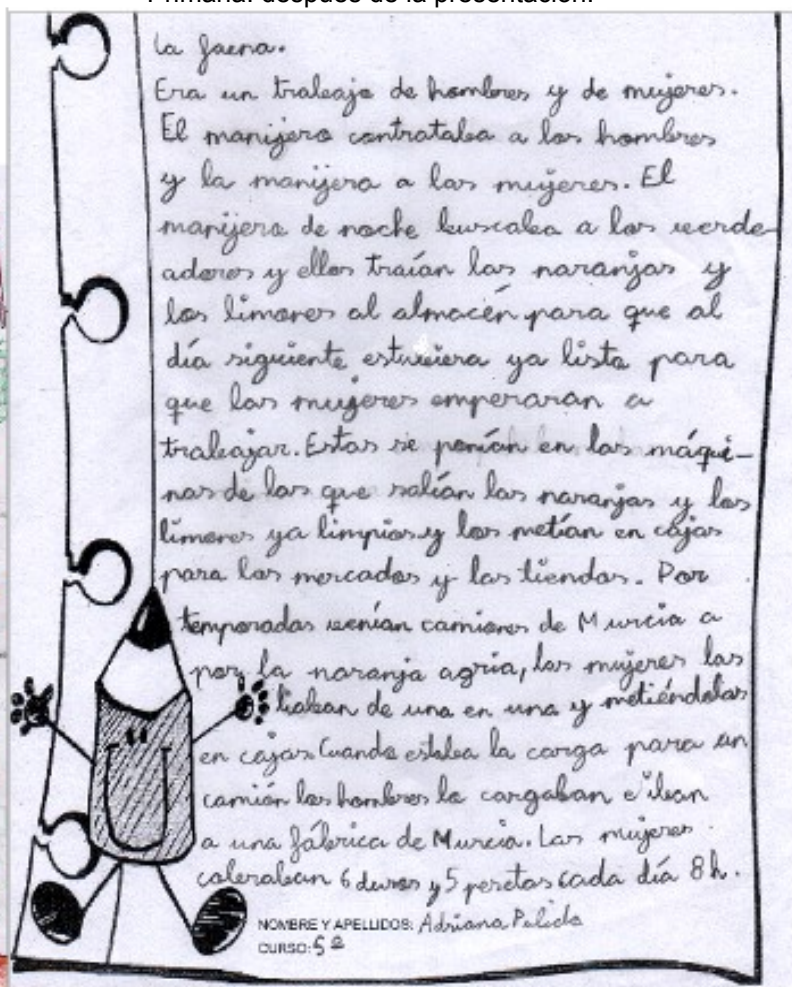 Primaria: después de la presentación.
la faena.
Era un trabajo de hombres y de mujeres.
El manijero contrataba a los hombres
y la manijera a las mujeres. El
manijero de noche buscaba a los verde-
adores y ellos traían las naranjas y
los limones al almacén para que al
día siguiente estuviera ya listo para
que las mujeres empezaran a
trabajar. Estas se ponían en las máqui-
nas de las que salían las naranjas y los
limones ya limpios y los metían en cajas
para los mercados y las tiendas. Por
temporadas venían camiones de Murcia a
por la naranja agria, las mujeres las
liaban de una en una y metiéndolas
en cajas. Cuando estaba la carga para un
camión los hombres la cargaban e iban
a una fábrica de Murcia. Las mujeres
cobraban 6 duros y 5 pesetas cada día 8 h.
NOMBRE Y APELLIDOS: Adriana
CURSO: 5º